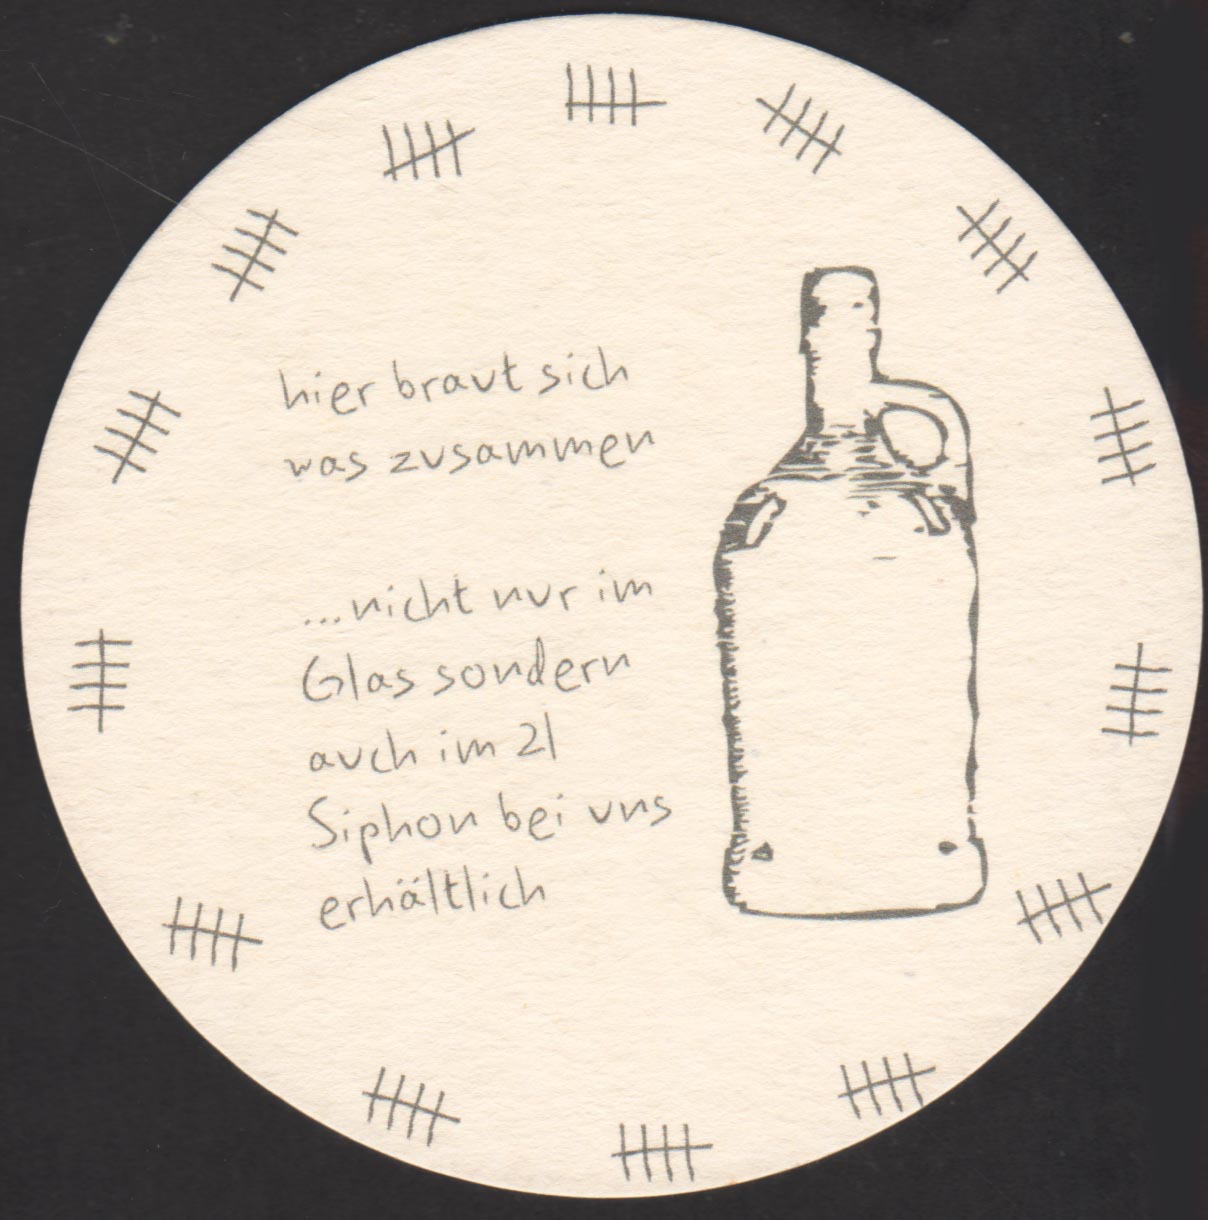 hier braut sich
was zusammen
...nicht nur im
Glas sondern
auch im 2l
Siphon bei uns
erhältlich